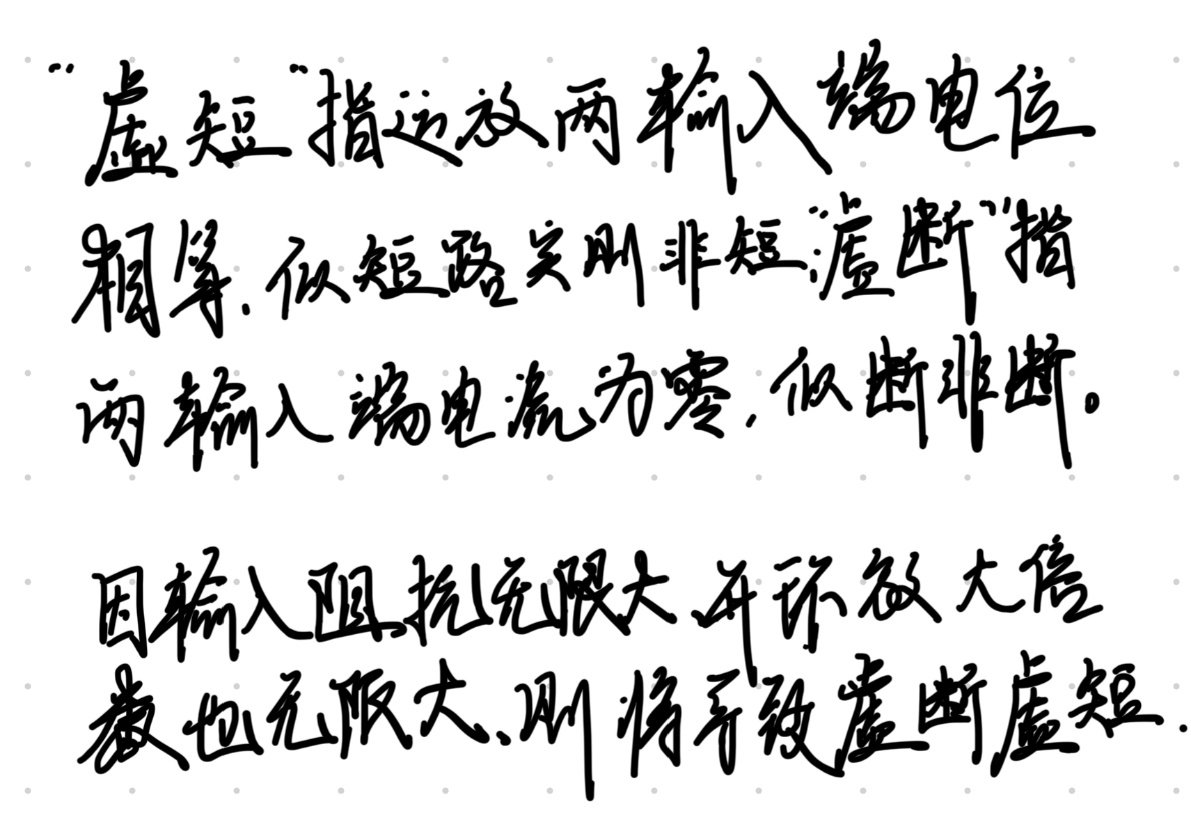 “虚短”指运放两输入端电位
相等,似短路实则非短;“虚断”指
两输入端电流为零,似断非断。
因输入阻抗无限大、开环放大倍
数也无限大、则将导致虚断虚短.